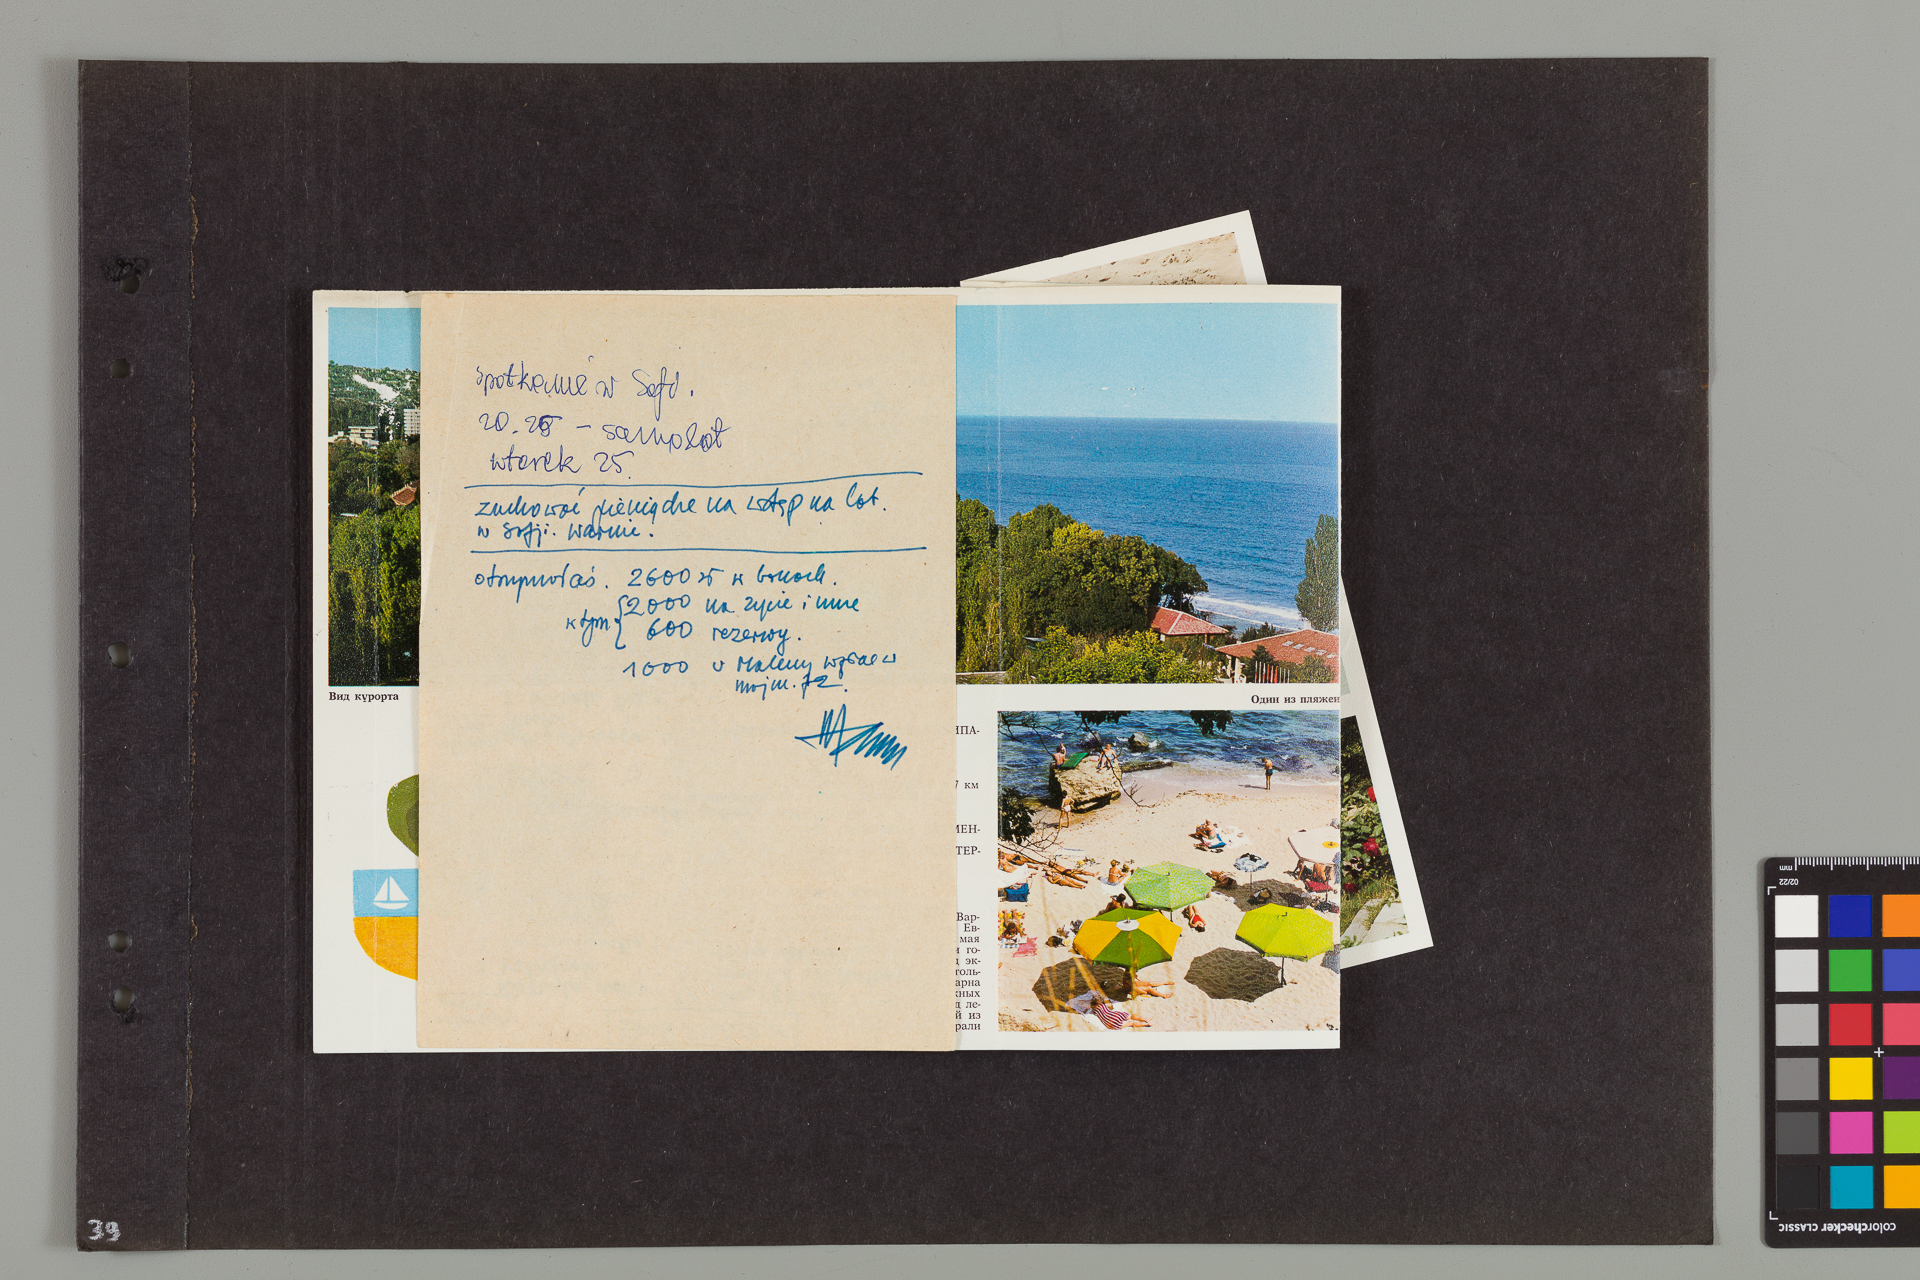 spotkanie w Sofi.
20.25 – samolot
wtorek 25
zachować pieniądze na wstęp na lot.
w Sofji. Warnie.
otrzymałaś. 2600 zł w bonach.
w tym { 2000 na życie i inne
600 rezerwy.
1000 u Maleny
Вид курорта
Один из пляжей
ИПА-
7 км
МЕН-
ТЕР-
Вар-
Ев-
мая
и го-
д эк-
толь-
арна
жных
д ле-
й из
рали
39
mm
02/22
colorchecker CLASSIC